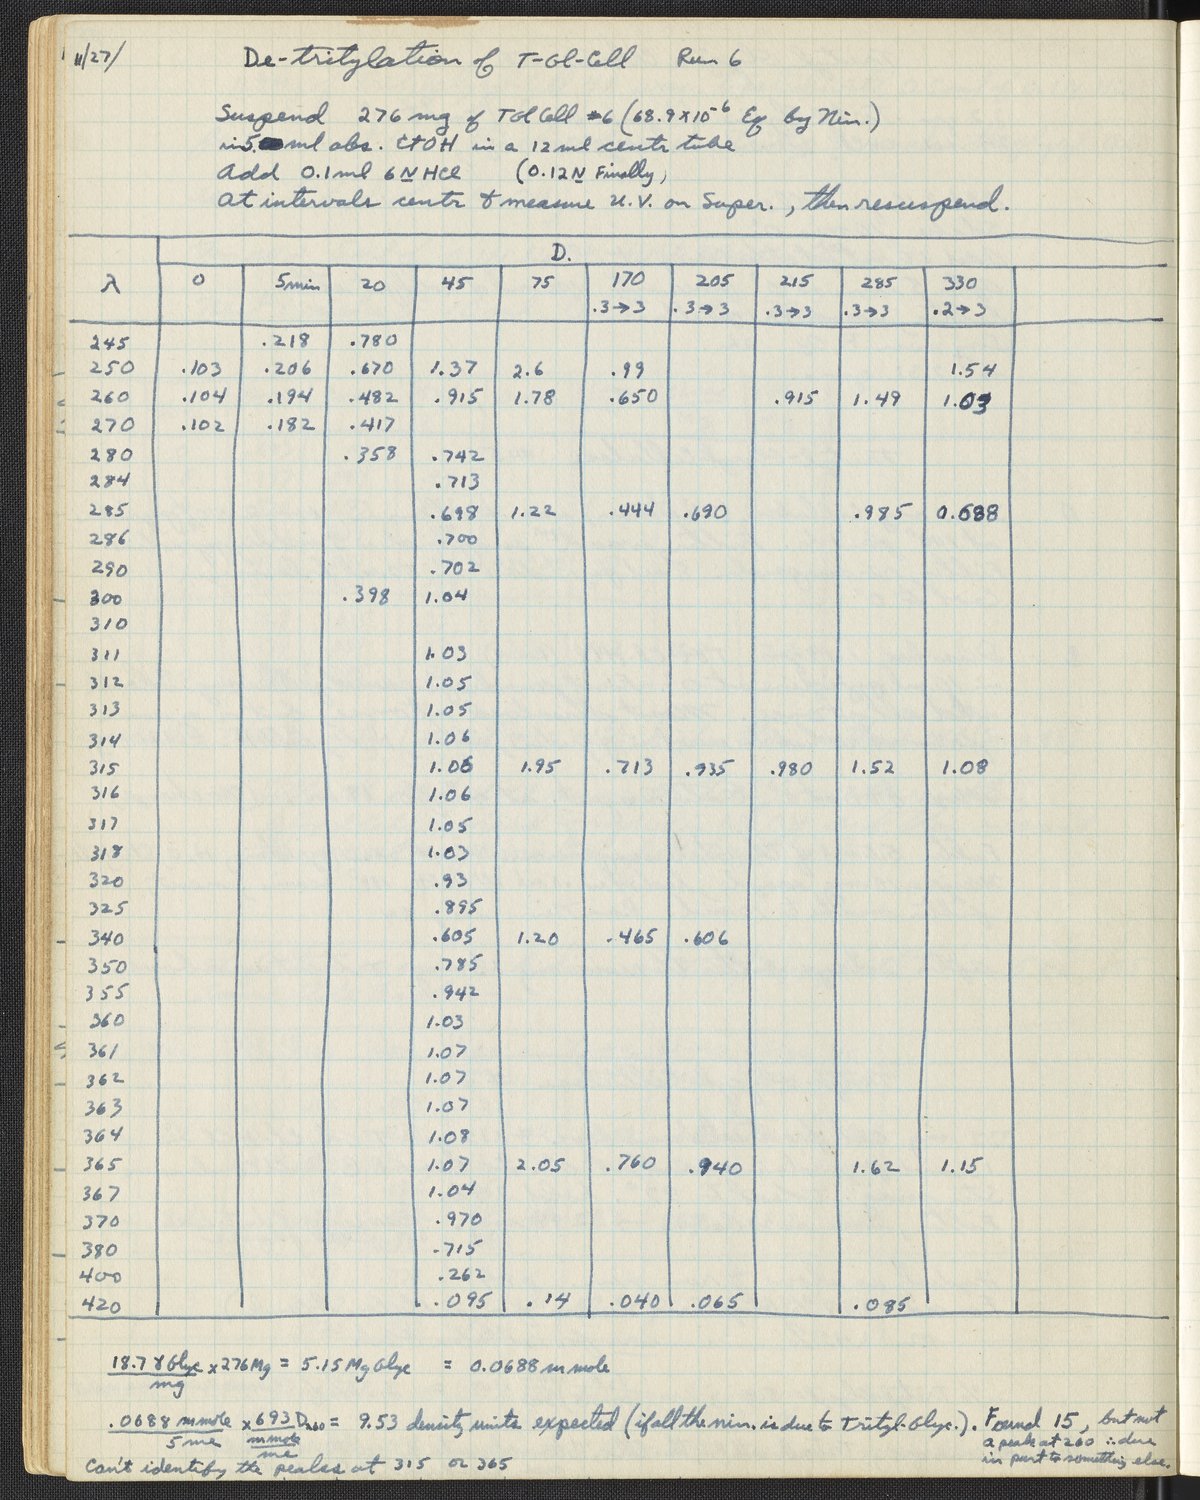 11/27/
De-tritylation of T-Gl-Cell Run 6
Suspend 276 mg of TGlCell #6 (68.9×10⁻⁶ Eq by Nin.)
in 5. ml abs. EtOH in a 12 ml centr tube
Add 0.1 ml 6N HCl (0.12N Finally)
At intervals centr & measure U.V. on Super., then resuspend.
D.
λ 0 5 min 20 45 75 170 205 215 285 330
.3→3 .3→3 .3→3 .3→3 .2→3
245 .218 .780
250 .103 .206 .670 1.37 2.6 .99 1.54
260 .104 .194 .482 .915 1.78 .650 .915 1.49 1.03
270 .102 .182 .417
280 .358 .742
284 .713
285 .698 1.22 .444 .690 .985 0.688
286 .700
290 .702
300 .398 1.04
310
311 1.03
312 1.05
313 1.05
314 1.06
315 1.06 1.95 .713 .935 .980 1.52 1.08
316 1.06
317 1.05
318 1.03
320 .93
325 .895
340 .605 1.20 .465 .606
350 .785
355 .942
360 1.03
361 1.07
362 1.07
363 1.07
364 1.08
365 1.07 2.05 .760 .940 1.62 1.15
367 1.04
370 .970
380 .715
400 .262
420 .095 .14 .040 .065 .085
18.7 γ Glyc × 276 Mg = 5.15 Mg Glyc = 0.0688 m mole
mg
.0688 m mole × 693 D₂₆₀ = 9.53 density units expected (if all the nin. is due to Trityl-Glyc.). Found 15, but not
5 ml m mole a peak at 260 ∴ due
ml in part to something else.
Can't identify the peaks at 315 or 365